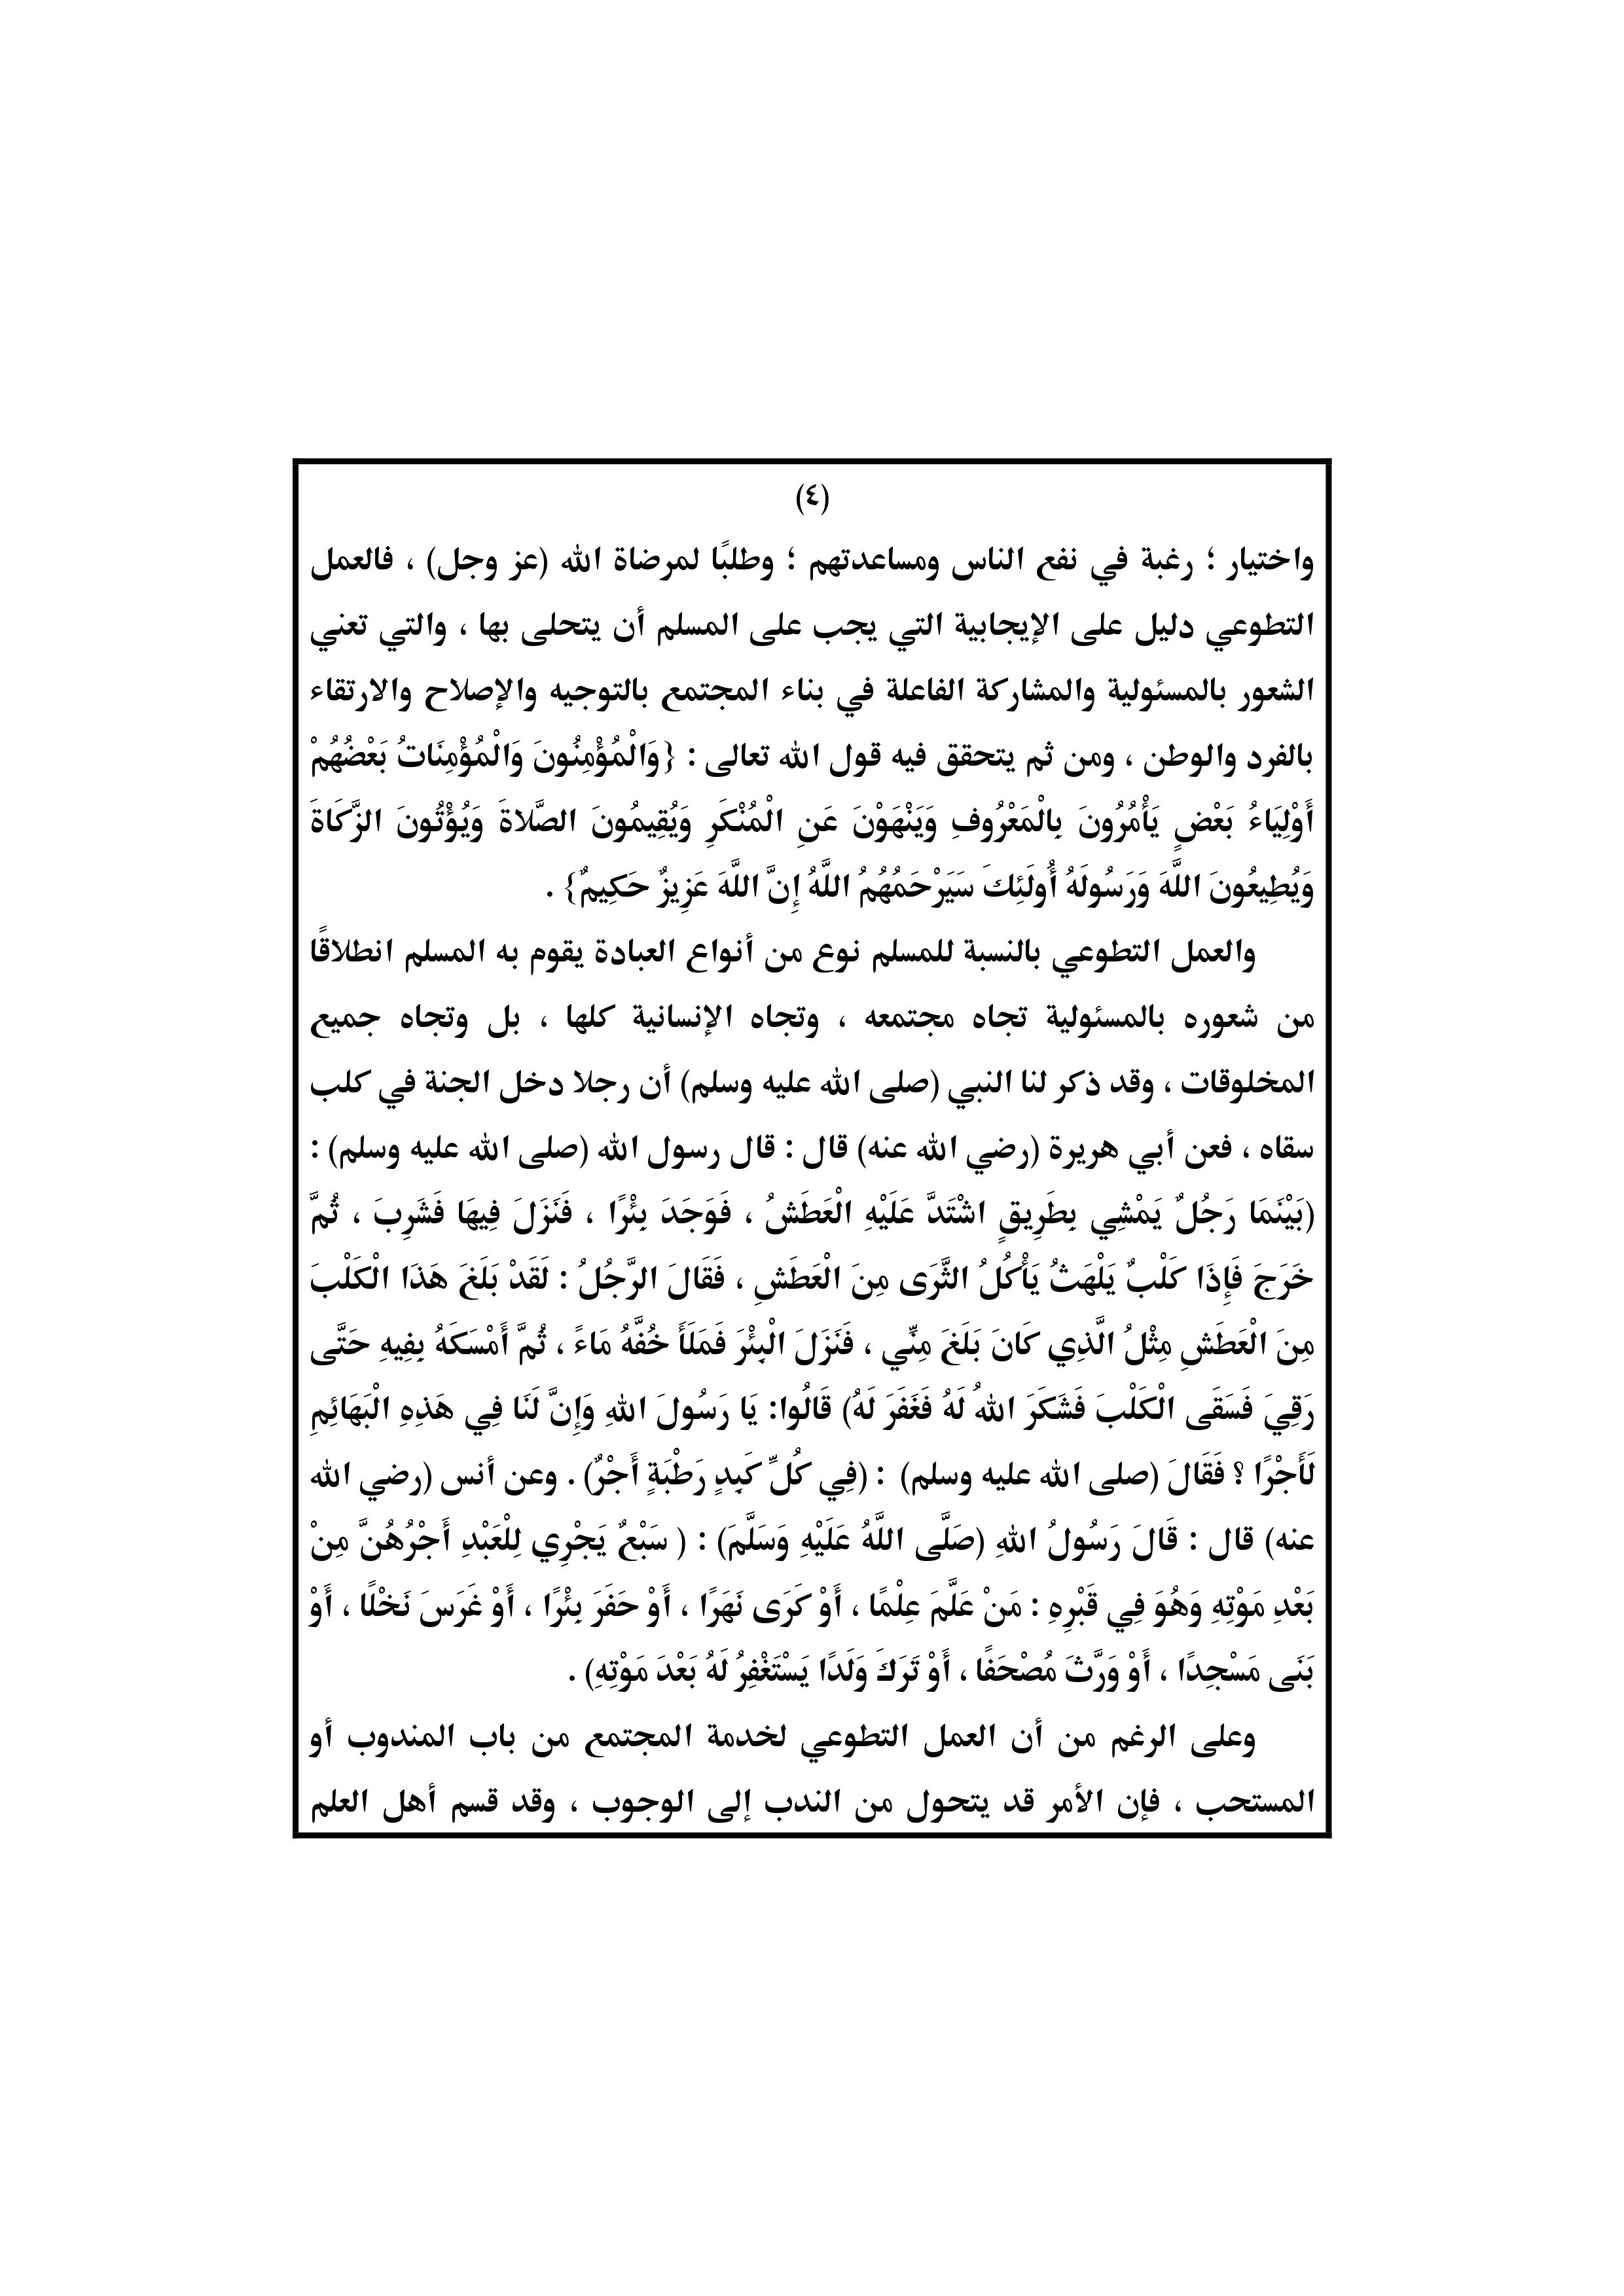 (٤)
واختيار ؛ رغبة في نفع الناس ومساعدتهم ؛ وطلبًا لمرضاة الله (عز وجل) ، فالعمل
التطوعي دليل على الإيجابية التي يجب على المسلم أن يتحلى بها ، والتي تعني
الشعور بالمسئولية والمشاركة الفاعلة في بناء المجتمع بالتوجيه والإصلاح والارتقاء
بالفرد والوطن ، ومن ثم يتحقق فيه قول الله تعالى : {وَالْمُؤْمِنُونَ وَالْمُؤْمِنَاتُ بَعْضُهُمْ
أَوْلِيَاءُ بَعْضٍ يَأْمُرُونَ بِالْمَعْرُوفِ وَيَنْهَوْنَ عَنِ الْمُنْكَرِ وَيُقِيمُونَ الصَّلاةَ وَيُؤْتُونَ الزَّكَاةَ
وَيُطِيعُونَ اللَّهَ وَرَسُولَهُ أُولَئِكَ سَيَرْحَمُهُمُ اللَّهُ إِنَّ اللَّهَ عَزِيزٌ حَكِيمٌ} .
والعمل التطوعي بالنسبة للمسلم نوع من أنواع العبادة يقوم به المسلم انطلاقًا
من شعوره بالمسئولية تجاه مجتمعه ، وتجاه الإنسانية كلها ، بل وتجاه جميع
المخلوقات ، وقد ذكر لنا النبي (صلى الله عليه وسلم) أن رجلا دخل الجنة في كلب
سقاه ، فعن أبي هريرة (رضي الله عنه) قال : قال رسول الله (صلى الله عليه وسلم) :
(بَيْنَمَا رَجُلٌ يَمْشِي بِطَرِيقٍ اشْتَدَّ عَلَيْهِ الْعَطَشُ ، فَوَجَدَ بِئْرًا ، فَنَزَلَ فِيهَا فَشَرِبَ ، ثُمَّ
خَرَجَ فَإِذَا كَلْبٌ يَلْهَثُ يَأْكُلُ الثَّرَى مِنَ الْعَطَشِ ، فَقَالَ الرَّجُلُ : لَقَدْ بَلَغَ هَذَا الْكَلْبَ
مِنَ الْعَطَشِ مِثْلُ الَّذِي كَانَ بَلَغَ مِنِّي ، فَنَزَلَ الْبِئْرَ فَمَلَأَ خُفَّهُ مَاءً ، ثُمَّ أَمْسَكَهُ بِفِيهِ حَتَّى
رَقِيَ فَسَقَى الْكَلْبَ فَشَكَرَ اللهُ لَهُ فَغَفَرَ لَهُ) قَالُوا: يَا رَسُولَ اللهِ وَإِنَّ لَنَا فِي هَذِهِ الْبَهَائِمِ
لَأَجْرًا ؟ فَقَالَ (صلى الله عليه وسلم)  : (فِي كُلِّ كَبِدٍ رَطْبَةٍ أَجْرٌ) . وعن أنس (رضي الله
عنه) قال : قَالَ رَسُولُ اللهِ (صَلَّى اللَّهُ عَلَيْهِ وَسَلَّمَ) : ( سَبْعٌ يَجْرِي لِلْعَبْدِ أَجْرُهُنَّ مِنْ
بَعْدِ مَوْتِهِ وَهُوَ فِي قَبْرِهِ : مَنْ عَلَّمَ عِلْمًا ، أَوْ كَرَى نَهَرًا ، أَوْ حَفَرَ بِئْرًا ، أَوْ غَرَسَ نَخْلًا ، أَوْ
بَنَى مَسْجِدًا ، أَوْ وَرَّثَ مُصْحَفًا ، أَوْ تَرَكَ وَلَدًا يَسْتَغْفِرُ لَهُ بَعْدَ مَوْتِهِ) .
وعلى الرغم من أن العمل التطوعي لخدمة المجتمع من باب المندوب أو
المستحب ، فإن الأمر قد يتحول من الندب إلى الوجوب ، وقد قسم أهل العلم